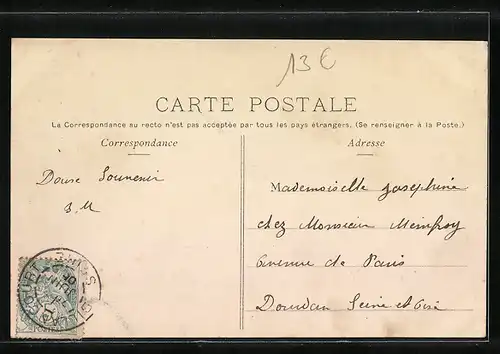 13 €
CARTE POSTALE
La Correspondance au recto n'est pas acceptée par tous les pays étrangers. (Se renseigner à la Poste.)
Correspondance
Adresse
Douse Souvenir
Mademoiselle Josephine
chez Monsieur Meinfroy
avenue de Paris
Dourdan Seine et Oise